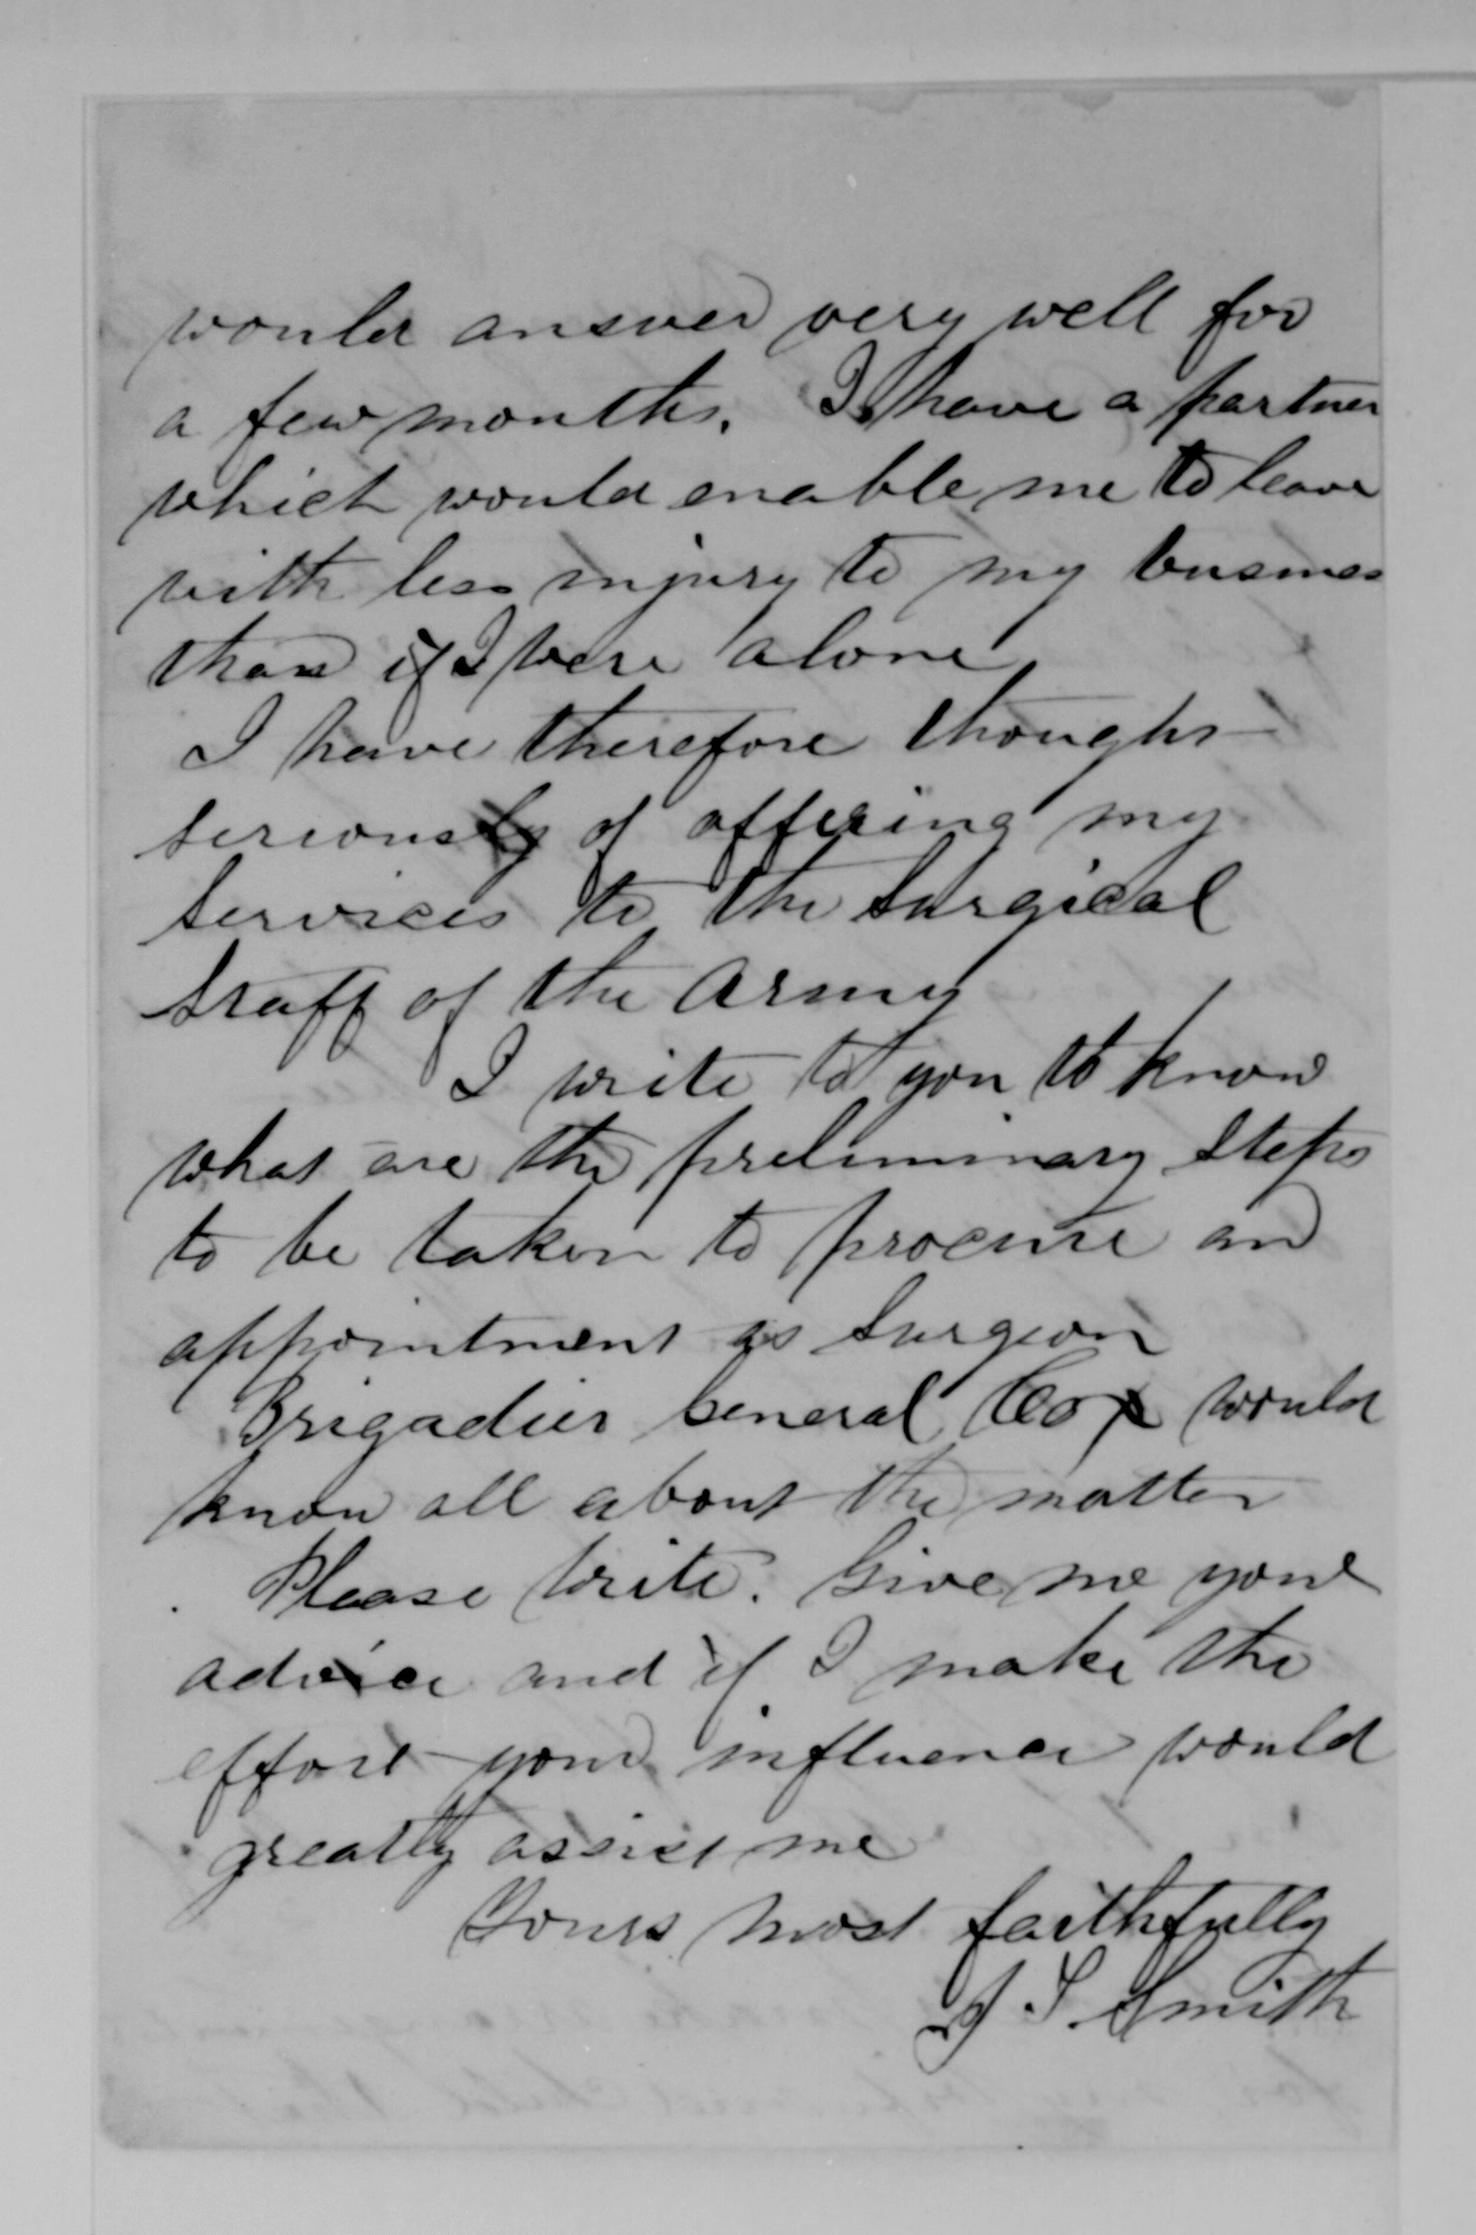 would answer very well for
a few months. I have a partner
which would enable me to leave
with less injury to my business
than if I were alone,
I have therefore thought
seriously of offering my
services to the Surgical
Staff of the Army
I write to you to know
what are the preliminary steps
to be taken to procure an
appointment as Surgeon
Brigadier General Cox would
know all about the matter
Please write. Give me your
advice and if I make the
effort your influence would
greatly assist me
Yours most faithfully
J S. Smith